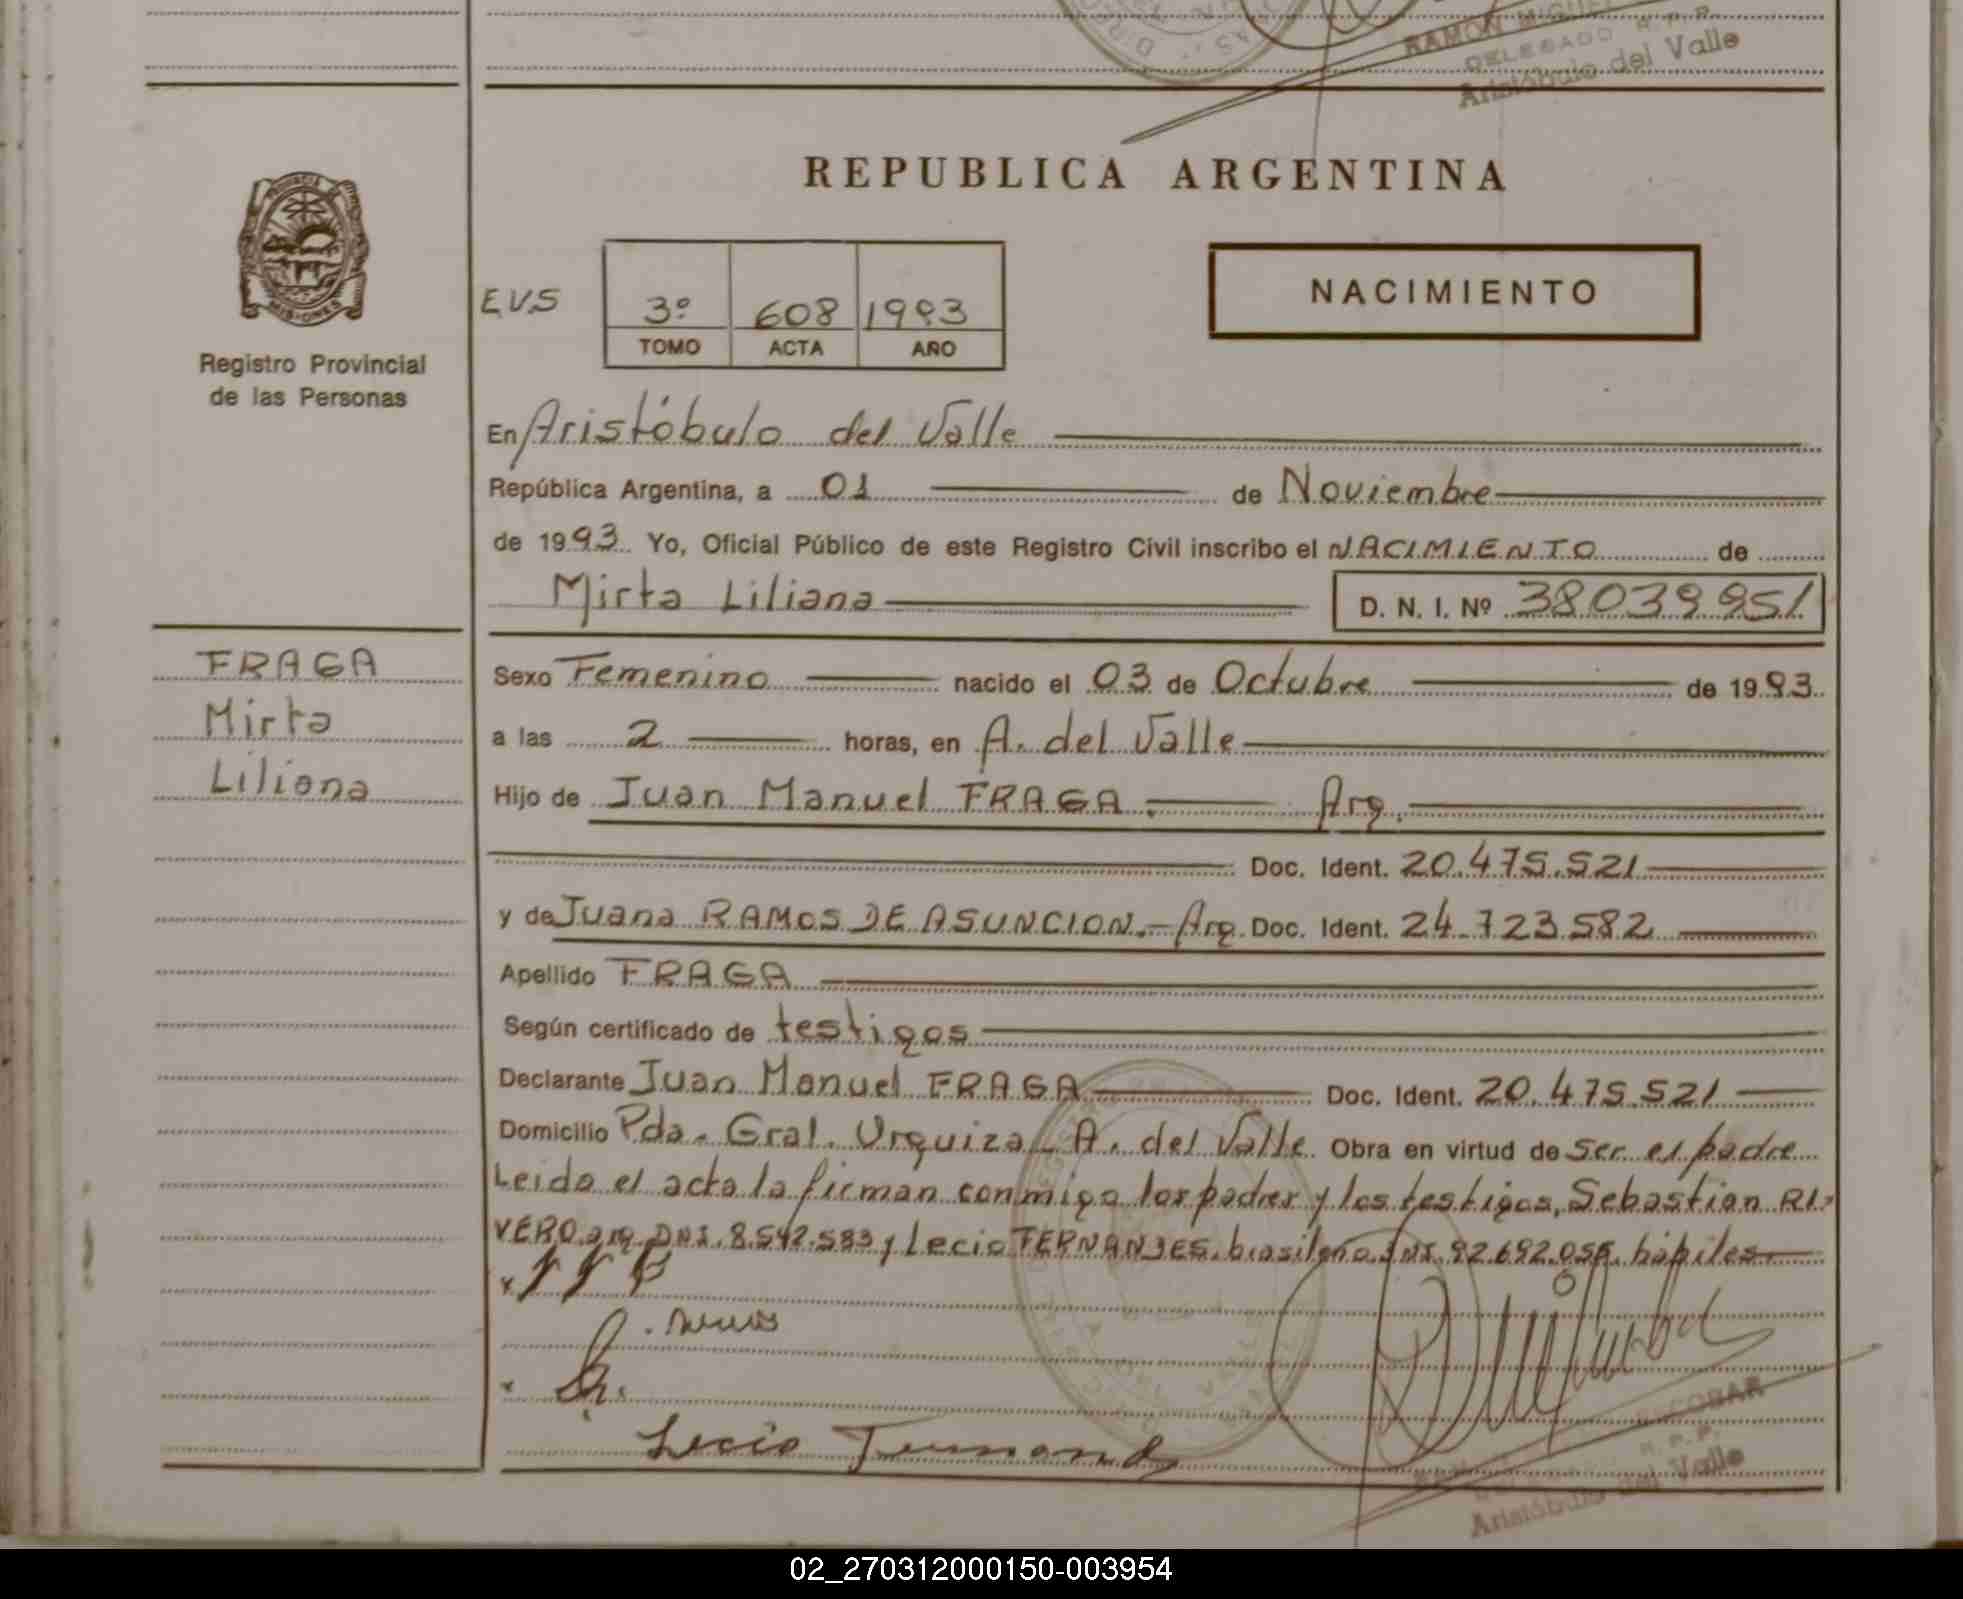 RAMON MIGUEL
DELEGADO R. P. P.
Aristóbulo del Valle
REPUBLICA ARGENTINA
PROVINCIA DE
MISIONES
Registro Provincial
de las Personas
EVS
3º 608 1993
TOMO ACTA AÑO
NACIMIENTO
En Aristóbulo del Valle
República Argentina, a 01 de Noviembre
de 1993. Yo, Oficial Público de este Registro Civil inscribo el NACIMIENTO de
Mirta Liliana D. N. I. Nº 38039951
FRAGA
Mirta
Liliana
Sexo Femenino nacido el 03 de Octubre de 1993.
a las 2 horas, en A. del Valle
Hijo de Juan Manuel FRAGA.— Arg.
Doc. Ident. 20.475.521
y de Juana RAMOS DE ASUNCION.— Arg. Doc. Ident. 24.723.582
Apellido FRAGA
Según certificado de testigos
Declarante Juan Manuel FRAGA Doc. Ident. 20.475.521
Domicilio Pda. Gral. Urquiza - A. del Valle. Obra en virtud de ser el padre
Leida el acta la firman conmigo los padres y los testigos, Sebastian RI-
VERO arg. DNI. 8.542.583 y Lecio FERNANDES. brasileño DNI. 92.692.055. hábiles.
Lecio Fernand
ESCOBAR
R. P. P.
Aristóbulo del Valle
02_270312000150-003954